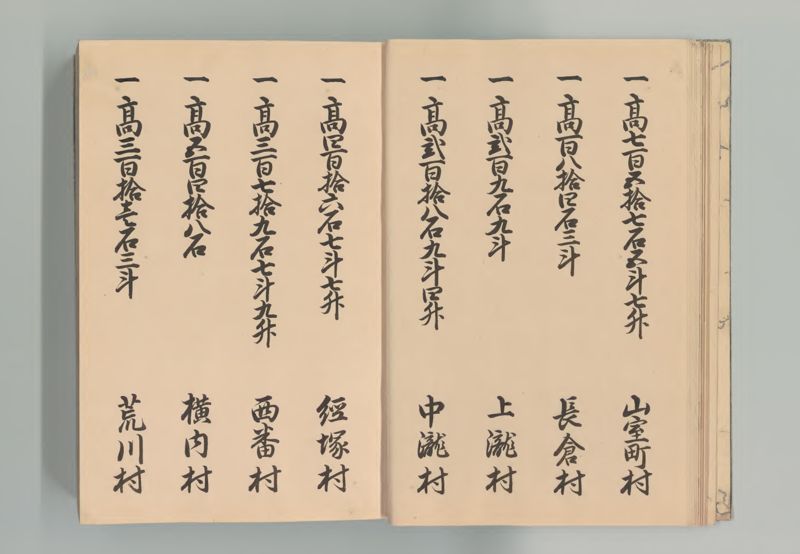 一 高七百五拾七石五斗七升 山室町村
一 高百八拾四石三斗 長倉村
一 高弐百九石九斗 上瀧村
一 高弐百拾八石九斗四升 中瀧村
一 高四百拾六石七斗七升 經塚村
一 高三百七拾九石七斗九升 西番村
一 高五百四拾八石 横内村
一 高三百拾壱石三斗 荒川村